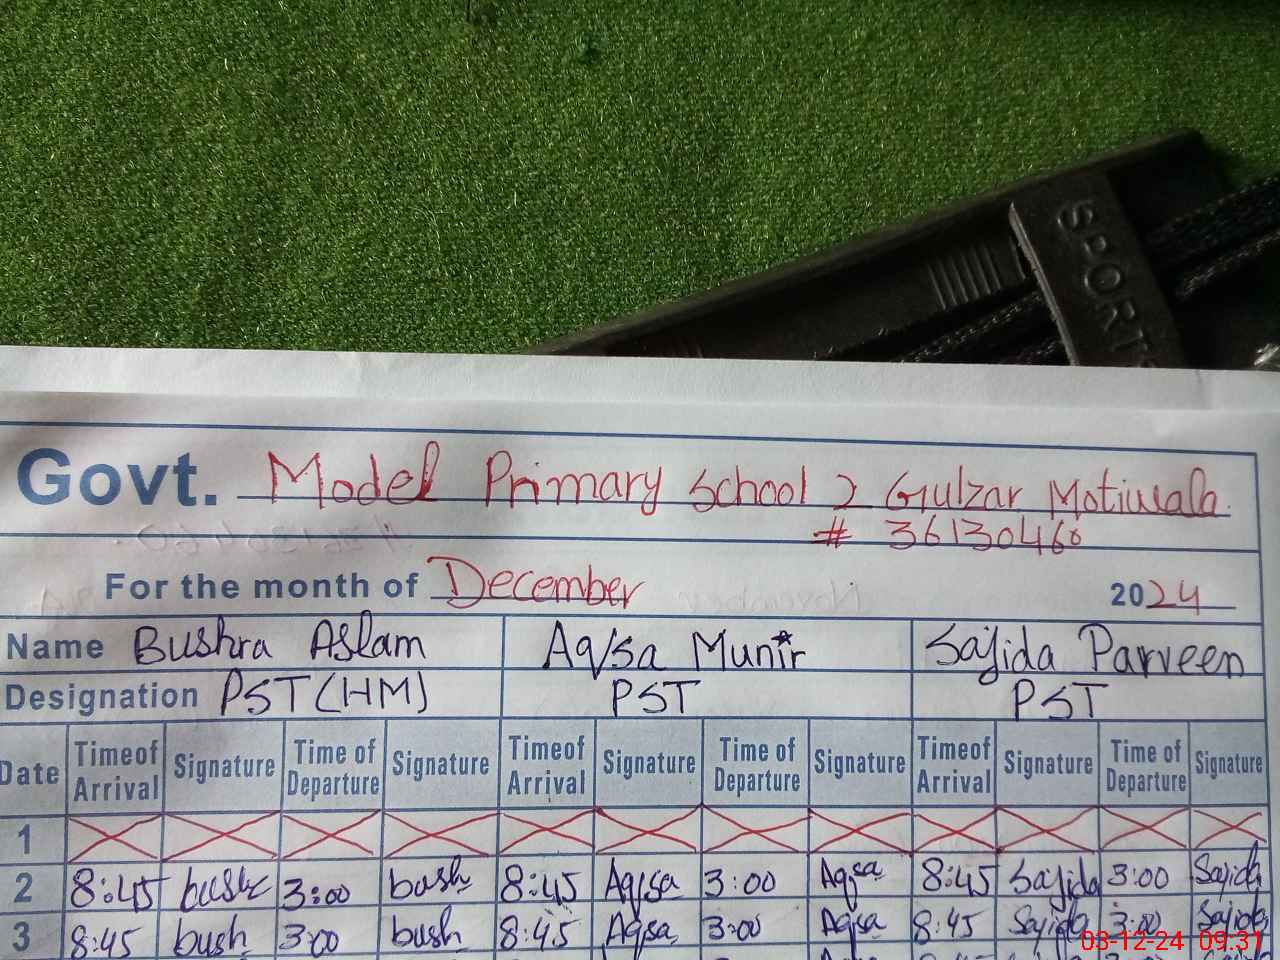 SPORTS
Govt. Model Primary School 2 Gulzar Motiwala
# 36130460
For the month of December 2024
Name Bushra Aslam Aqsa Munir Sajida Parveen
Designation PST(HM) PST PST
Date Timeof Arrival Signature Time of Departure Signature Timeof Arrival Signature Time of Departure Signature Timeof Arrival Signature Time of Departure Signature
1
2 8:45 bush 3:00 bush 8:45 Aqsa 3:00 Aqsa 8:45 Sajida 3:00 Sajida
3 8:45 bush 3:00 bush 8:45 Aqsa 3:00 Aqsa 8:45 Sajida 3:00 Sajida
03-12-24 09:31